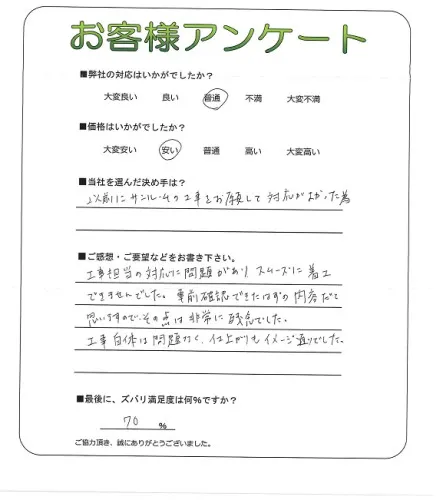 お客様アンケート
■弊社の対応はいかがでしたか？
大変良い 良い 普通 不満 大変不満
■価格はいかがでしたか？
大変安い 安い 普通 高い 大変高い
■当社を選んだ決め手は？
以前にサンルームの工事をお願いして対応がよかった為
■ご感想・ご要望などをお書き下さい。
工事担当の対応に問題がありスムーズに着工
できませんでした。事前確認できたはずの内容だと
思いますので、その点は非常に残念でした。
工事自体は問題なく、仕上がりもイメージ通りでした。
■最後に、ズバリ満足度は何%ですか？
70 %
ご協力頂き、誠にありがとうございました。